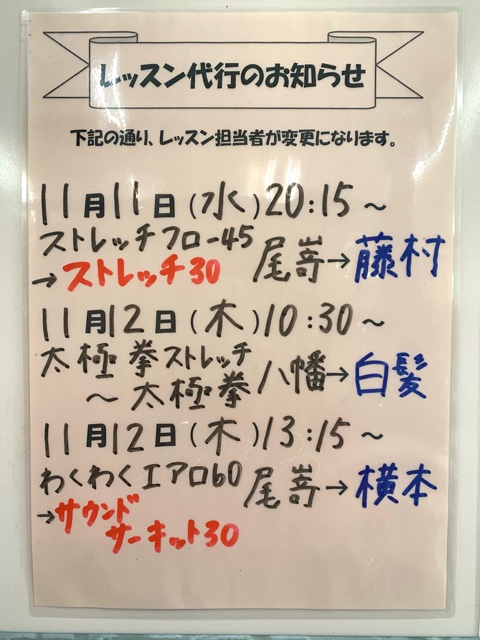 レッスン代行のお知らせ
下記の通り、レッスン担当者が変更になります。
11月11日(水)20:15～
ストレッチフロー45 尾嵜→藤村
→ストレッチ30
11月12日(木)10:30～
太極拳ストレッチ 八幡→白髪
～太極拳
11月12日(木)13:15～
わくわくエアロ60 尾嵜→横本
→サウンド
サーキット30